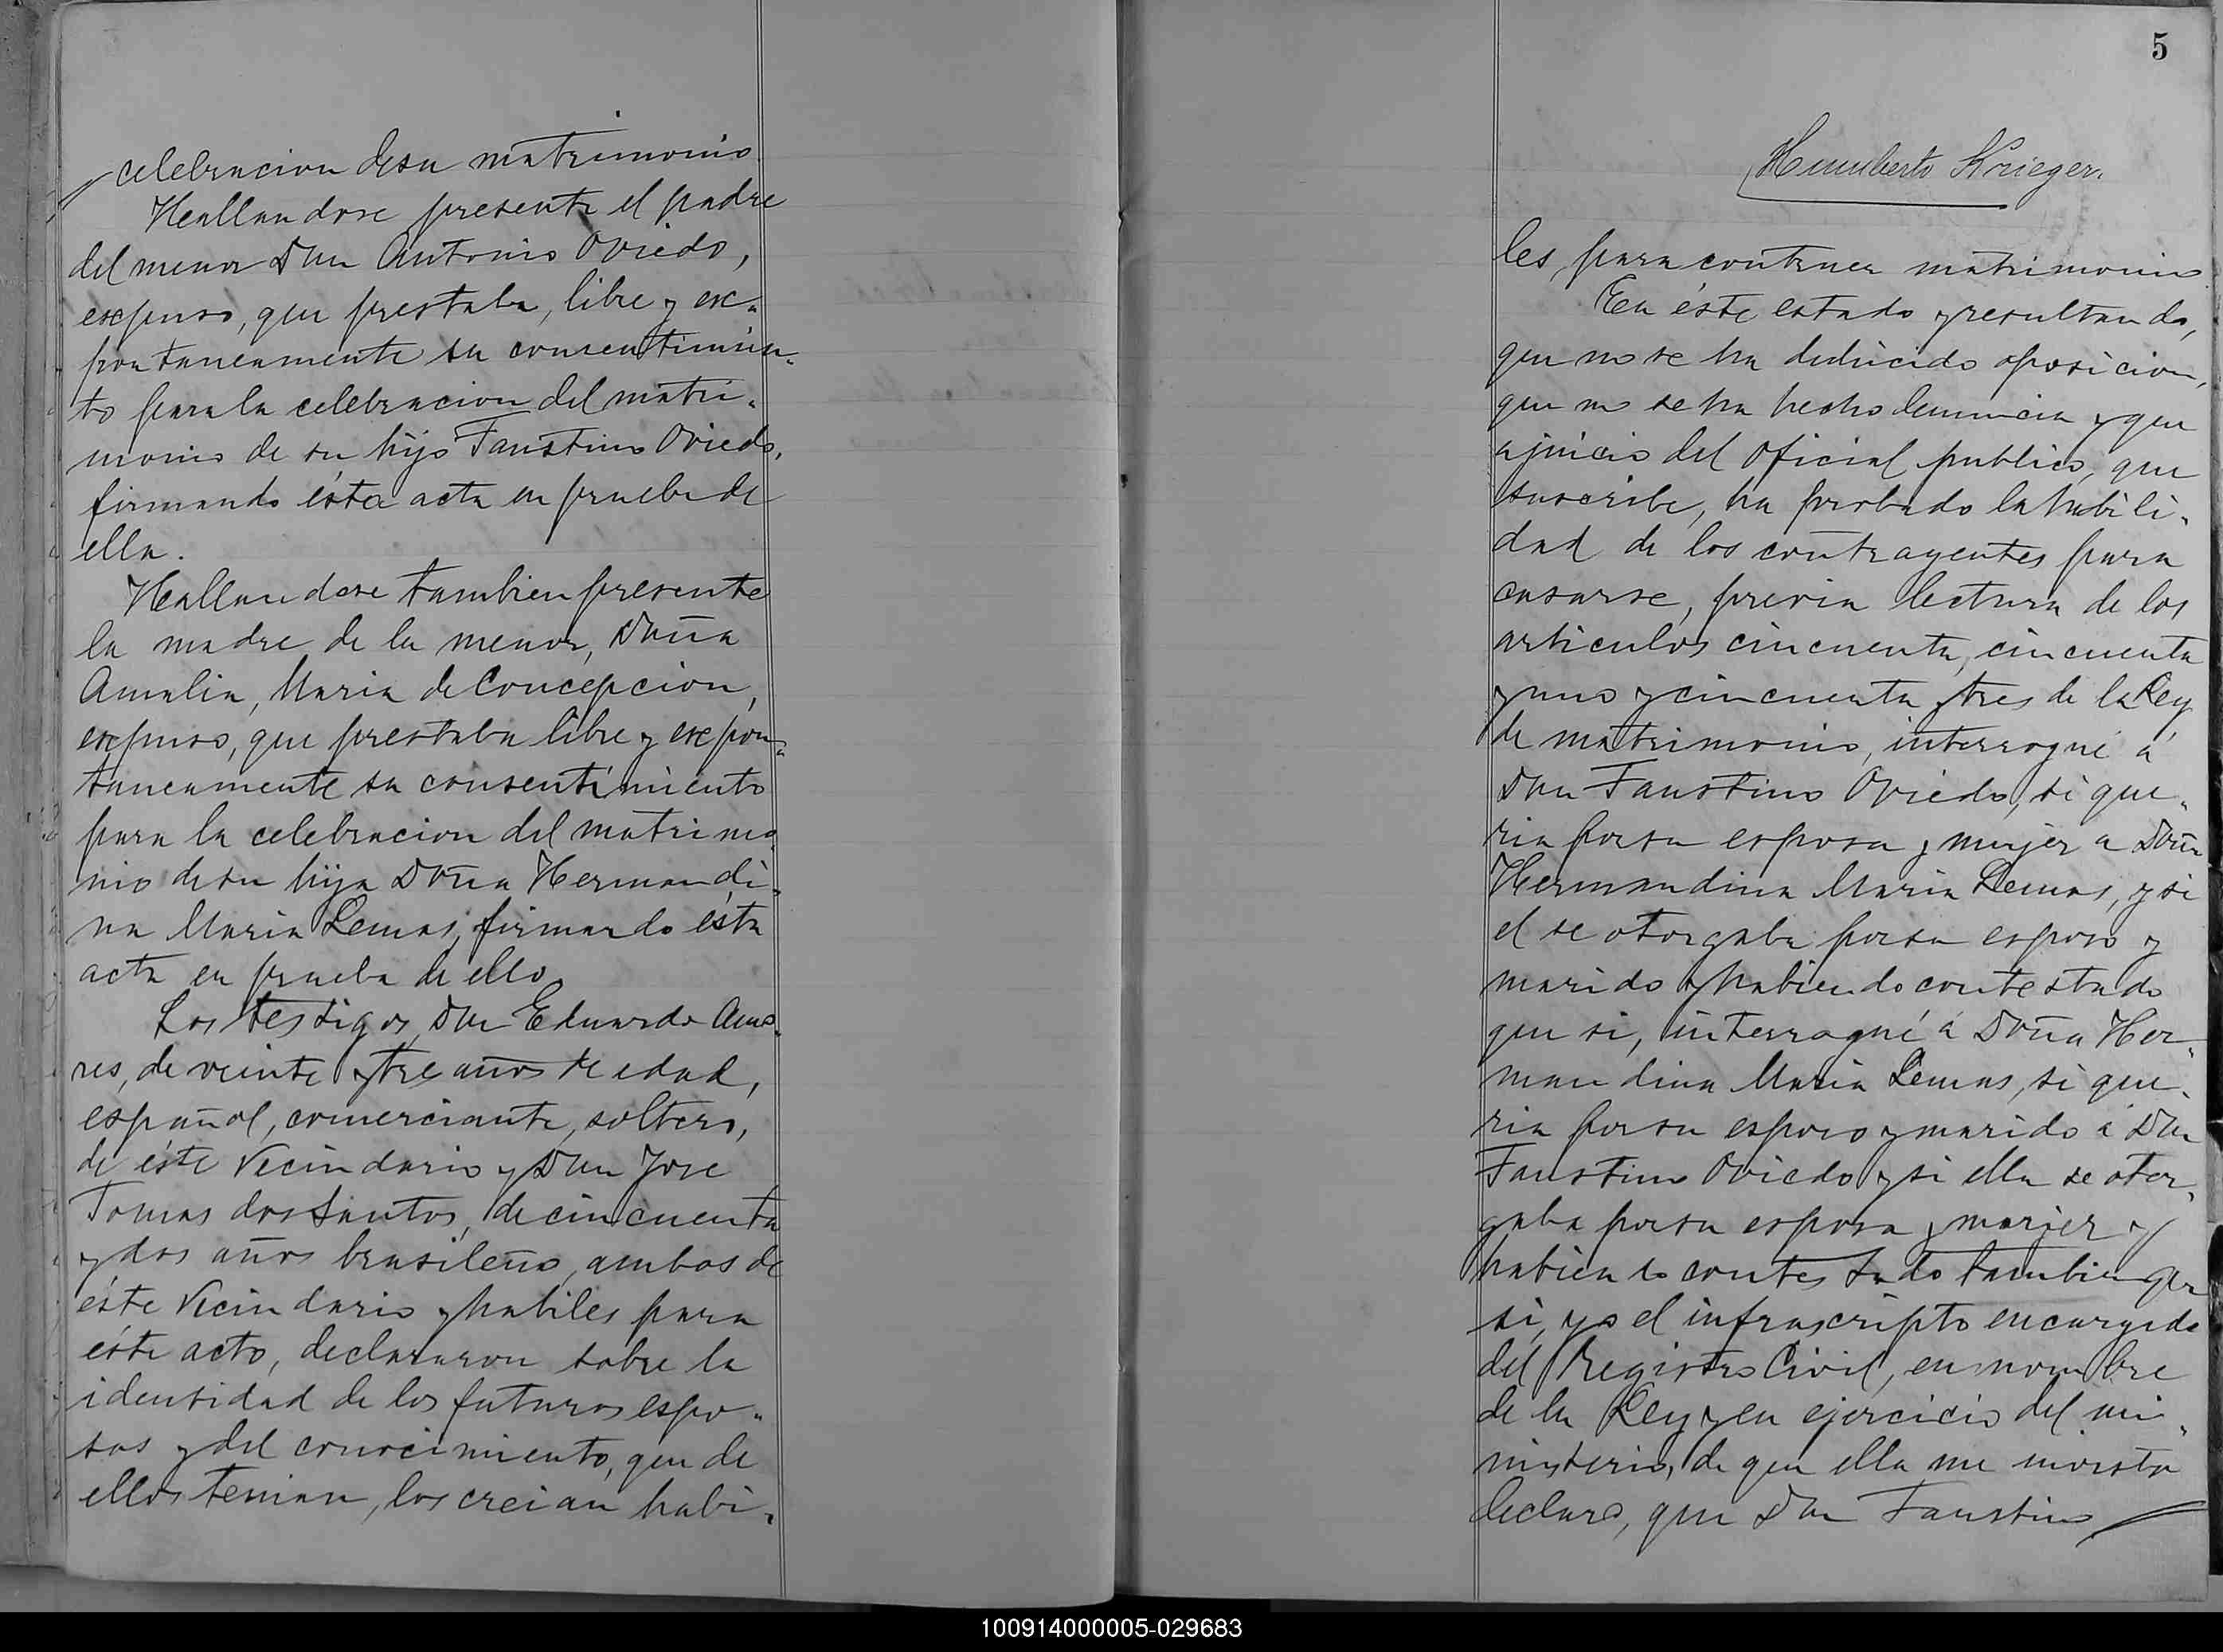 celebracion desu matrimonio
Heallandose presente el padre
del menor Don Antonio Oviedo,
expuso, que prestaba, libre y ex-
pontaneamente su consentimien-
to para la celebracion del matri-
monio de su hijo Faustino Oviedo,
firmando ésta acta en prueba de
ella.
Heallandose tambien presente
la madre de la menor, Doña
Amalia, Maria de Concepcion,
expuso, que prestaba libre y expon-
taneamente su consentimiento
para la celebracion del matrimo-
nio de su hija Doña Hermandi-
na Maria Lemas, firmando ésta
acta en prueba de ello
Los testigos, Don Eduardo Amo-
res, de veinte y tre años de edad,
español, comerciante, soltero,
de éste Vecindario y Don Jose
Tomas dos Santos, de cincuenta
y dos años brasileño, ambos de
éste Vecindario y habiles para
éste acto, declararon sobre la
identidad de los futuros espo-
sos y del conocimiento, que de
ellos tenian, los creian habi-
5
Humberto Krieger.
les, para contraer matrimonio
En éste estado y resultando,
que no se ha deducido oposicion,
que no se ha hecho denuncia y que
a juicio del oficial publico, que
suscribe, ha probado la habili-
dad de los contrayentes para
casarse, previa lectura de los
articulos cincuenta, cincuenta
y uno y cincuenta y tres de la Ley
de matrimonio, interrogué á
Don Faustino Oviedo, si que-
ria por su esposa y mujer a Doña
Hermandina Maria Lemas, y si
el se otorgaba por su esposo y
marido y habiendo contestado
que si, interrogué á Doña Her-
mandina Maria Lemas, si que-
ria por su esposo y marido á Don
Faustino Oviedo y si ella se otor-
gaba por su esposa y marjer y
habiendo contestado tambien que
si, yo el infrascripto encargado
del Registro Civil, en nombre
de la Ley y en ejercicio del mi-
nisterio, de que ella me inviste
declaro, que Don Faustino
100914000005-029683